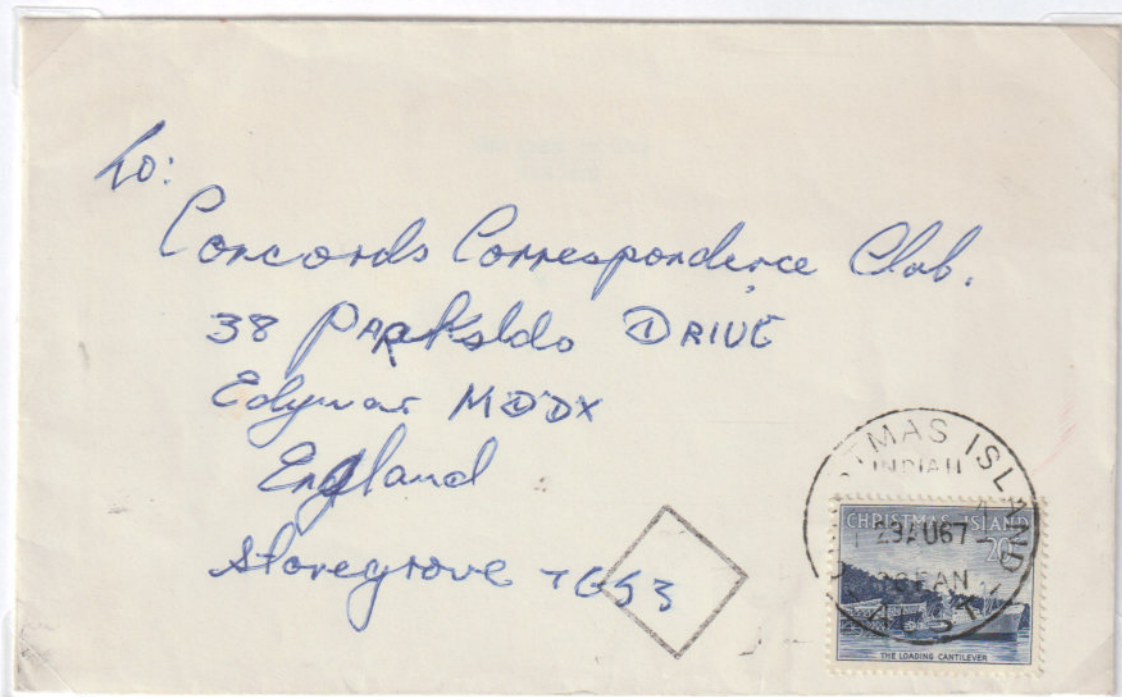 to:
Concords Correspondence Club.
38 Parksldo DRIVE
Edgwar MDDX
England
Stonegrove 7653
CHRISTMAS ISLAND
INDIAN
29 AU 67
OCEAN
AUST
CHRISTMAS ISLAND
20c
THE LOADING CANTILEVER